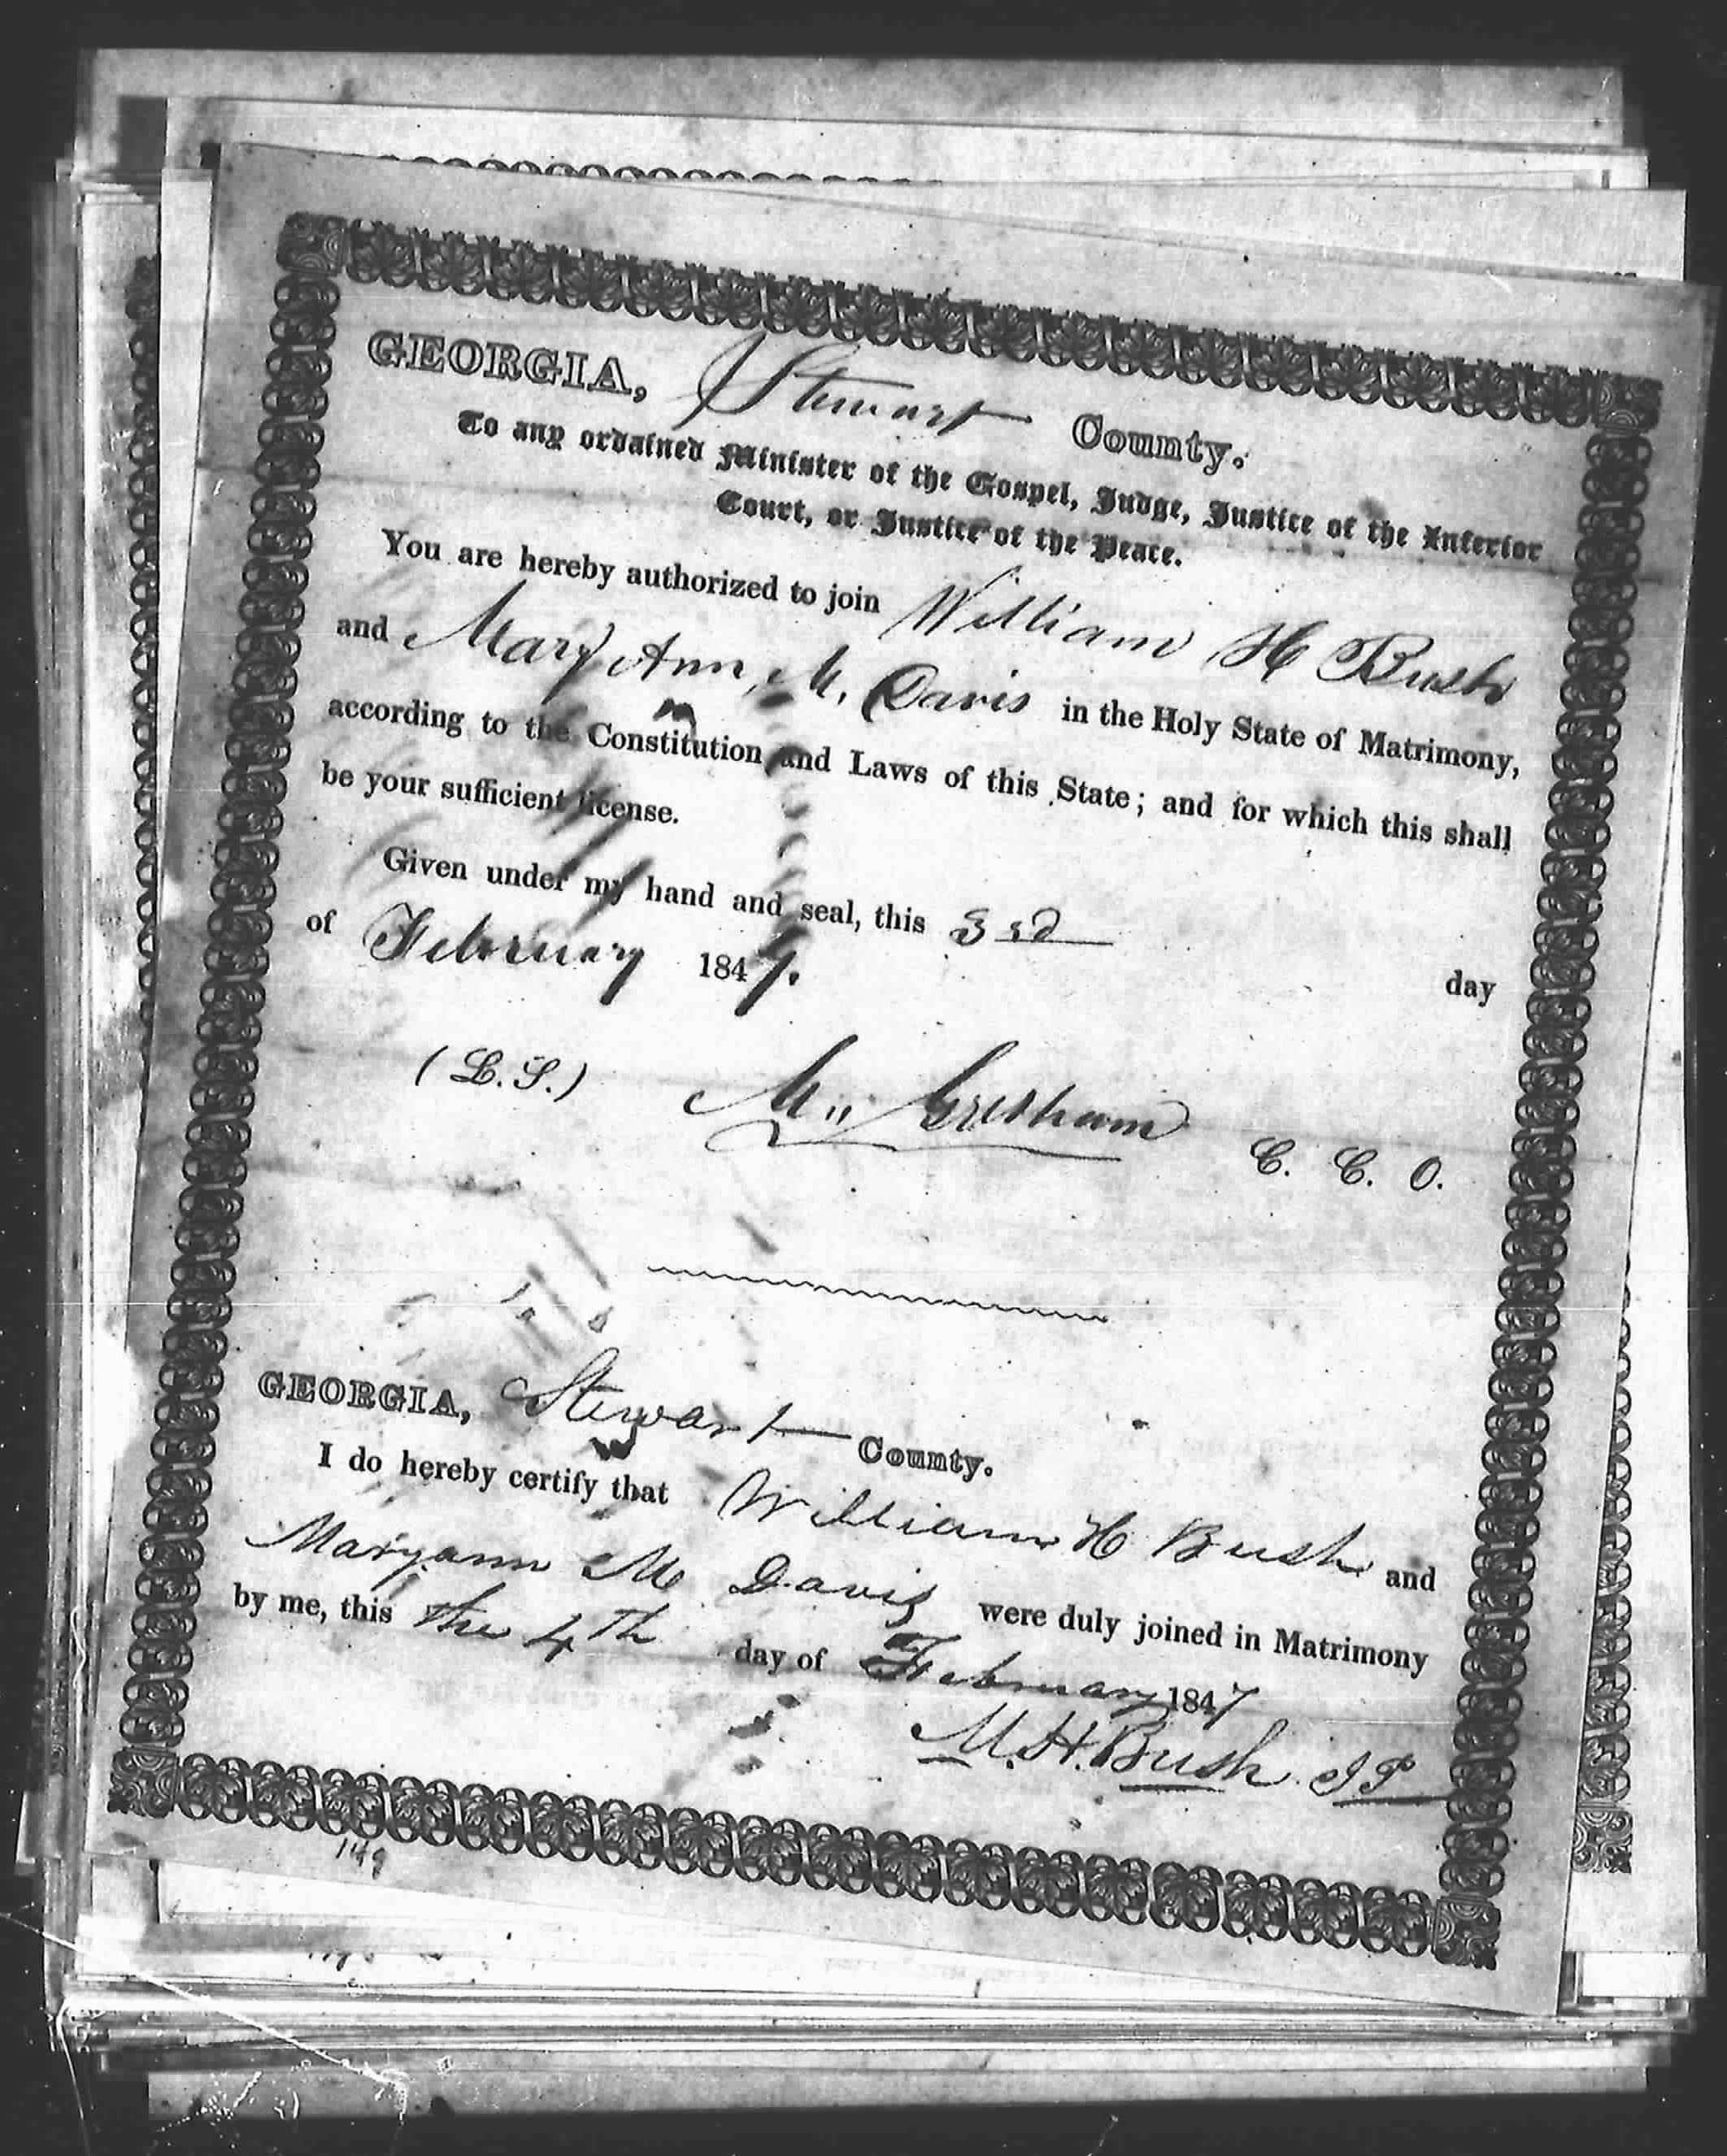 GEORGIA, Stewart County.
To any ordained Minister of the Gospel, Judge, Justice of the Inferior
Court, or Justice of the Peace.
You are hereby authorized to join William H Bush
and Mary Ann, M. Davis in the Holy State of Matrimony,
according to the Constitution and Laws of this State; and for which this shall
be your sufficient license.
Given under my hand and seal, this 3rd day
of February 1847.
(L.S.) M. Gresham C. C. O.
GEORGIA, Stewart County.
I do hereby certify that William H Bush and
Maryann M Davis were duly joined in Matrimony
by me, this the 4th day of February 1847
M. H. Bush JP
149